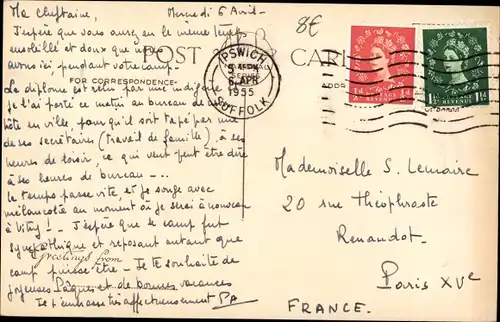 Ma cheftaine, Mercredi 6 Avril -
J'espère que vous aurez eu le même temps
ensoleillé et doux que nous
avons ici, pendant votre camp.
POST CARD
FOR CORRESPONDENCE
ADDR
8€
IPSWICH
6 APR
1955
SUFFOLK
½d REVENUE ½d
1½d REVENUE 1½d
Le diplôme est
je l'ai porté ce matin au bureau de
hôte en ville pourqu'il soit tapé par une
de ses secrétaires (travail de famille) à ses
heures de loisir, ce qui veut peut être dire
à ses heures de bureau ---
le temps passe vite, et je songe avec
mélancolie au moment où je serai à nouveau
à Vitry ! -- J'espère que le camp fut
sympathique et reposant autant que
Greetings from
camp puisse être - Je te souhaite de
joyeuses Pâques et de bonnes vacances
Je t'embrasse très affectueusement PA
Mademoiselle S. Lemaire
20 rue Théophraste
Renaudot.
Paris XVe
FRANCE.